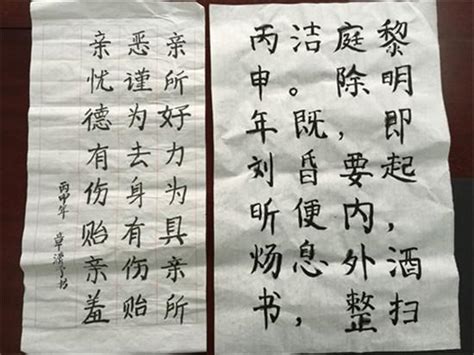 亲所好力为具亲所
恶谨为去身有伤贻
亲忧德有伤贻亲羞
丙申年 章 书
黎明即起，酒扫
庭除，要内外整
洁。既昏便息，
丙申年刘昕炀书